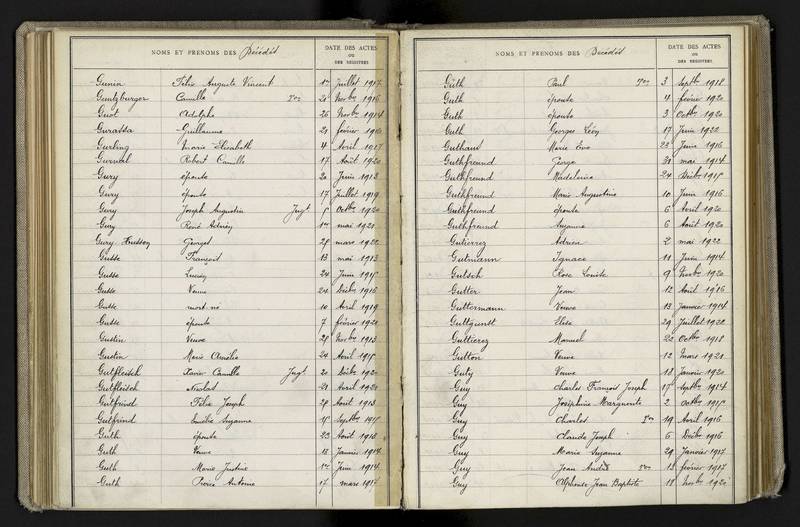 NOMS ET PRÉNOMS DES Décédés
DATE DES ACTES
OU
DES REGISTRES
Gunin Félix Auguste Vincent 1er Juillet 1917
Guntzburger Camille Ton 21 Novbre 1916
Guot Adolphe 26 Novbre 1914
Guratta Guillaume 21 février 1916
Gurling Marie Elisabeth 4 Avril 1917
Gurnal Robert Camille 17 Août 1920
Gury épouse 20 Juin 1913
Gury épouse 17 Juillet 1919
Gury Joseph Augustin Jugt 5 Octbre 1920
Gury René Adrien 1er mai 1921
Gury Husson Georges 28 mars 1922
Gusse François 13 mai 1913
Gusse Lucien 24 Juin 1915
Gusse Veuve 24 Décbre 1916
Gusse mort-né 10 Avril 1919
Gusse épouse 7 février 1920
Gustin Veuve 28 Novbre 1913
Gustin Marie Amélie 24 Avril 1915
Gutfleisch Xavier Camille Jugt 20 Décbre 1920
Gutfleisch Nicolas 21 Avril 1920
Gutfrind Félix Joseph 28 Août 1913
Gutfrind Emilie Suzanne 15 Septbre 1915
Guth épouse 23 Août 1916
Guth Veuve 18 Janvier 1914
Guth Marie Justine 1er Juin 1914
Guth Pierre Antoine 17 mars 1917
NOMS ET PRÉNOMS DES Décédés
DATE DES ACTES
OU
DES REGISTRES
Guth Paul Ton 3 Septbre 1918
Guth épouse 4 février 1920
Guth épouse 3 Octbre 1920
Guth Georges Léon 17 Juin 1922
Guthaus Marie Eve 23 Juin 1916
Guthfreund George 31 mai 1914
Guthfreund Madeleine 24 Décbre 1915
Guthfreund Marie Augustine 10 Juin 1916
Guthfreund épouse 6 Avril 1920
Guthfreund Suzanne 6 Août 1920
Gutierez Adrien 2 mai 1922
Gutmann Ignace 11 Juin 1914
Gutsch Rose Louise 9 Novbre 1920
Gutter Jean 12 Avril 1916
Guttermann Veuve 13 Janvier 1914
Elise 29 Juillet 1920
Guttierez Manuel 22 Octbre 1918
Gutton Veuve 12 Mars 1921
Guty Veuve 18 Janvier 1920
Guy Charles François Joseph 17 Septbre 1914
Guy Joséphine Marguerite 2 Octbre 1915
Guy Charles Ton 19 Avril 1916
Guy Claude Joseph 6 Décbre 1916
Guy Marie Suzanne 29 Janvier 1917
Guy Jean André Ton 13 février 1917
Guy Alphonse Jean Baptiste 18 Novbre 1920